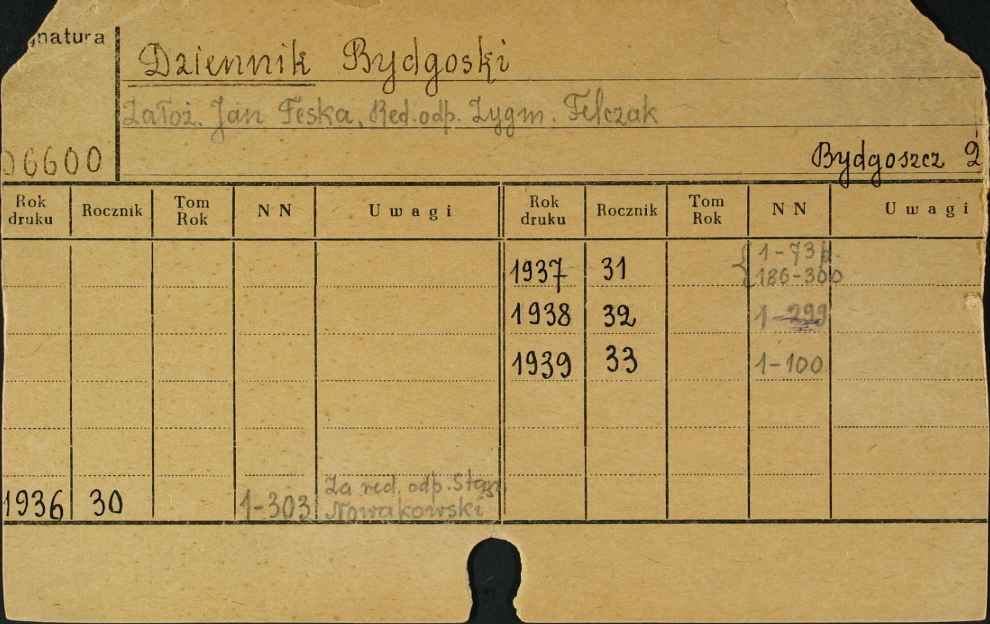 gnatura
Dziennik Bydgoski
Założ. Jan Teska, Red. odp. Zygm. Felczak
06600
Bydgoszcz 2
Rok druku Rocznik Tom Rok NN Uwagi Rok druku Rocznik Tom Rok NN Uwagi
1937 31 1-73
186-300
1938 32 1-299
1939 33 1-100
1936 30 1-303 Za red. odp.
Nowakowski